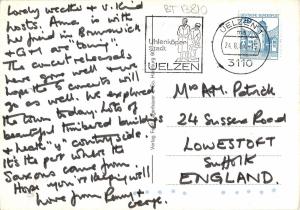 Lovely weather & v. kind
hosts. Anna is with
a friend in Brunswick
& G+M are "doing".
The concert rehearsals
have gone well so we
hope the 5 concerts will
go as well. We explored
the town today. Lots of
beautiful timbered buildings
& neat countryside.
It's the part where the
Saxons came from.
Hope you're keeping well
Love from Romy &
George.
BT 1381
Uhlenköper-
stadt
UELZEN
UELZEN 1
3110
DEUTSCHE BUNDESPOST
Mrs A H. Patrick
24 Sussex Road
LOWESTOFT
Suffolk
ENGLAND.